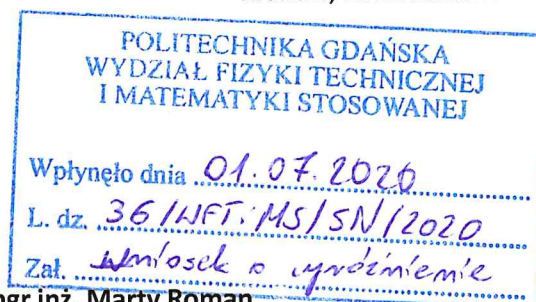 POLITECHNIKA GDAŃSKA
WYDZIAŁ FIZYKI TECHNICZNEJ
I MATEMATYKI STOSOWANEJ
Wpłynęło dnia 01.07.2020
L. dz. 36/WFTiMS/SN/2020
Zał. Wniosek o wyróżnienie
mgr inż. Marty Roman